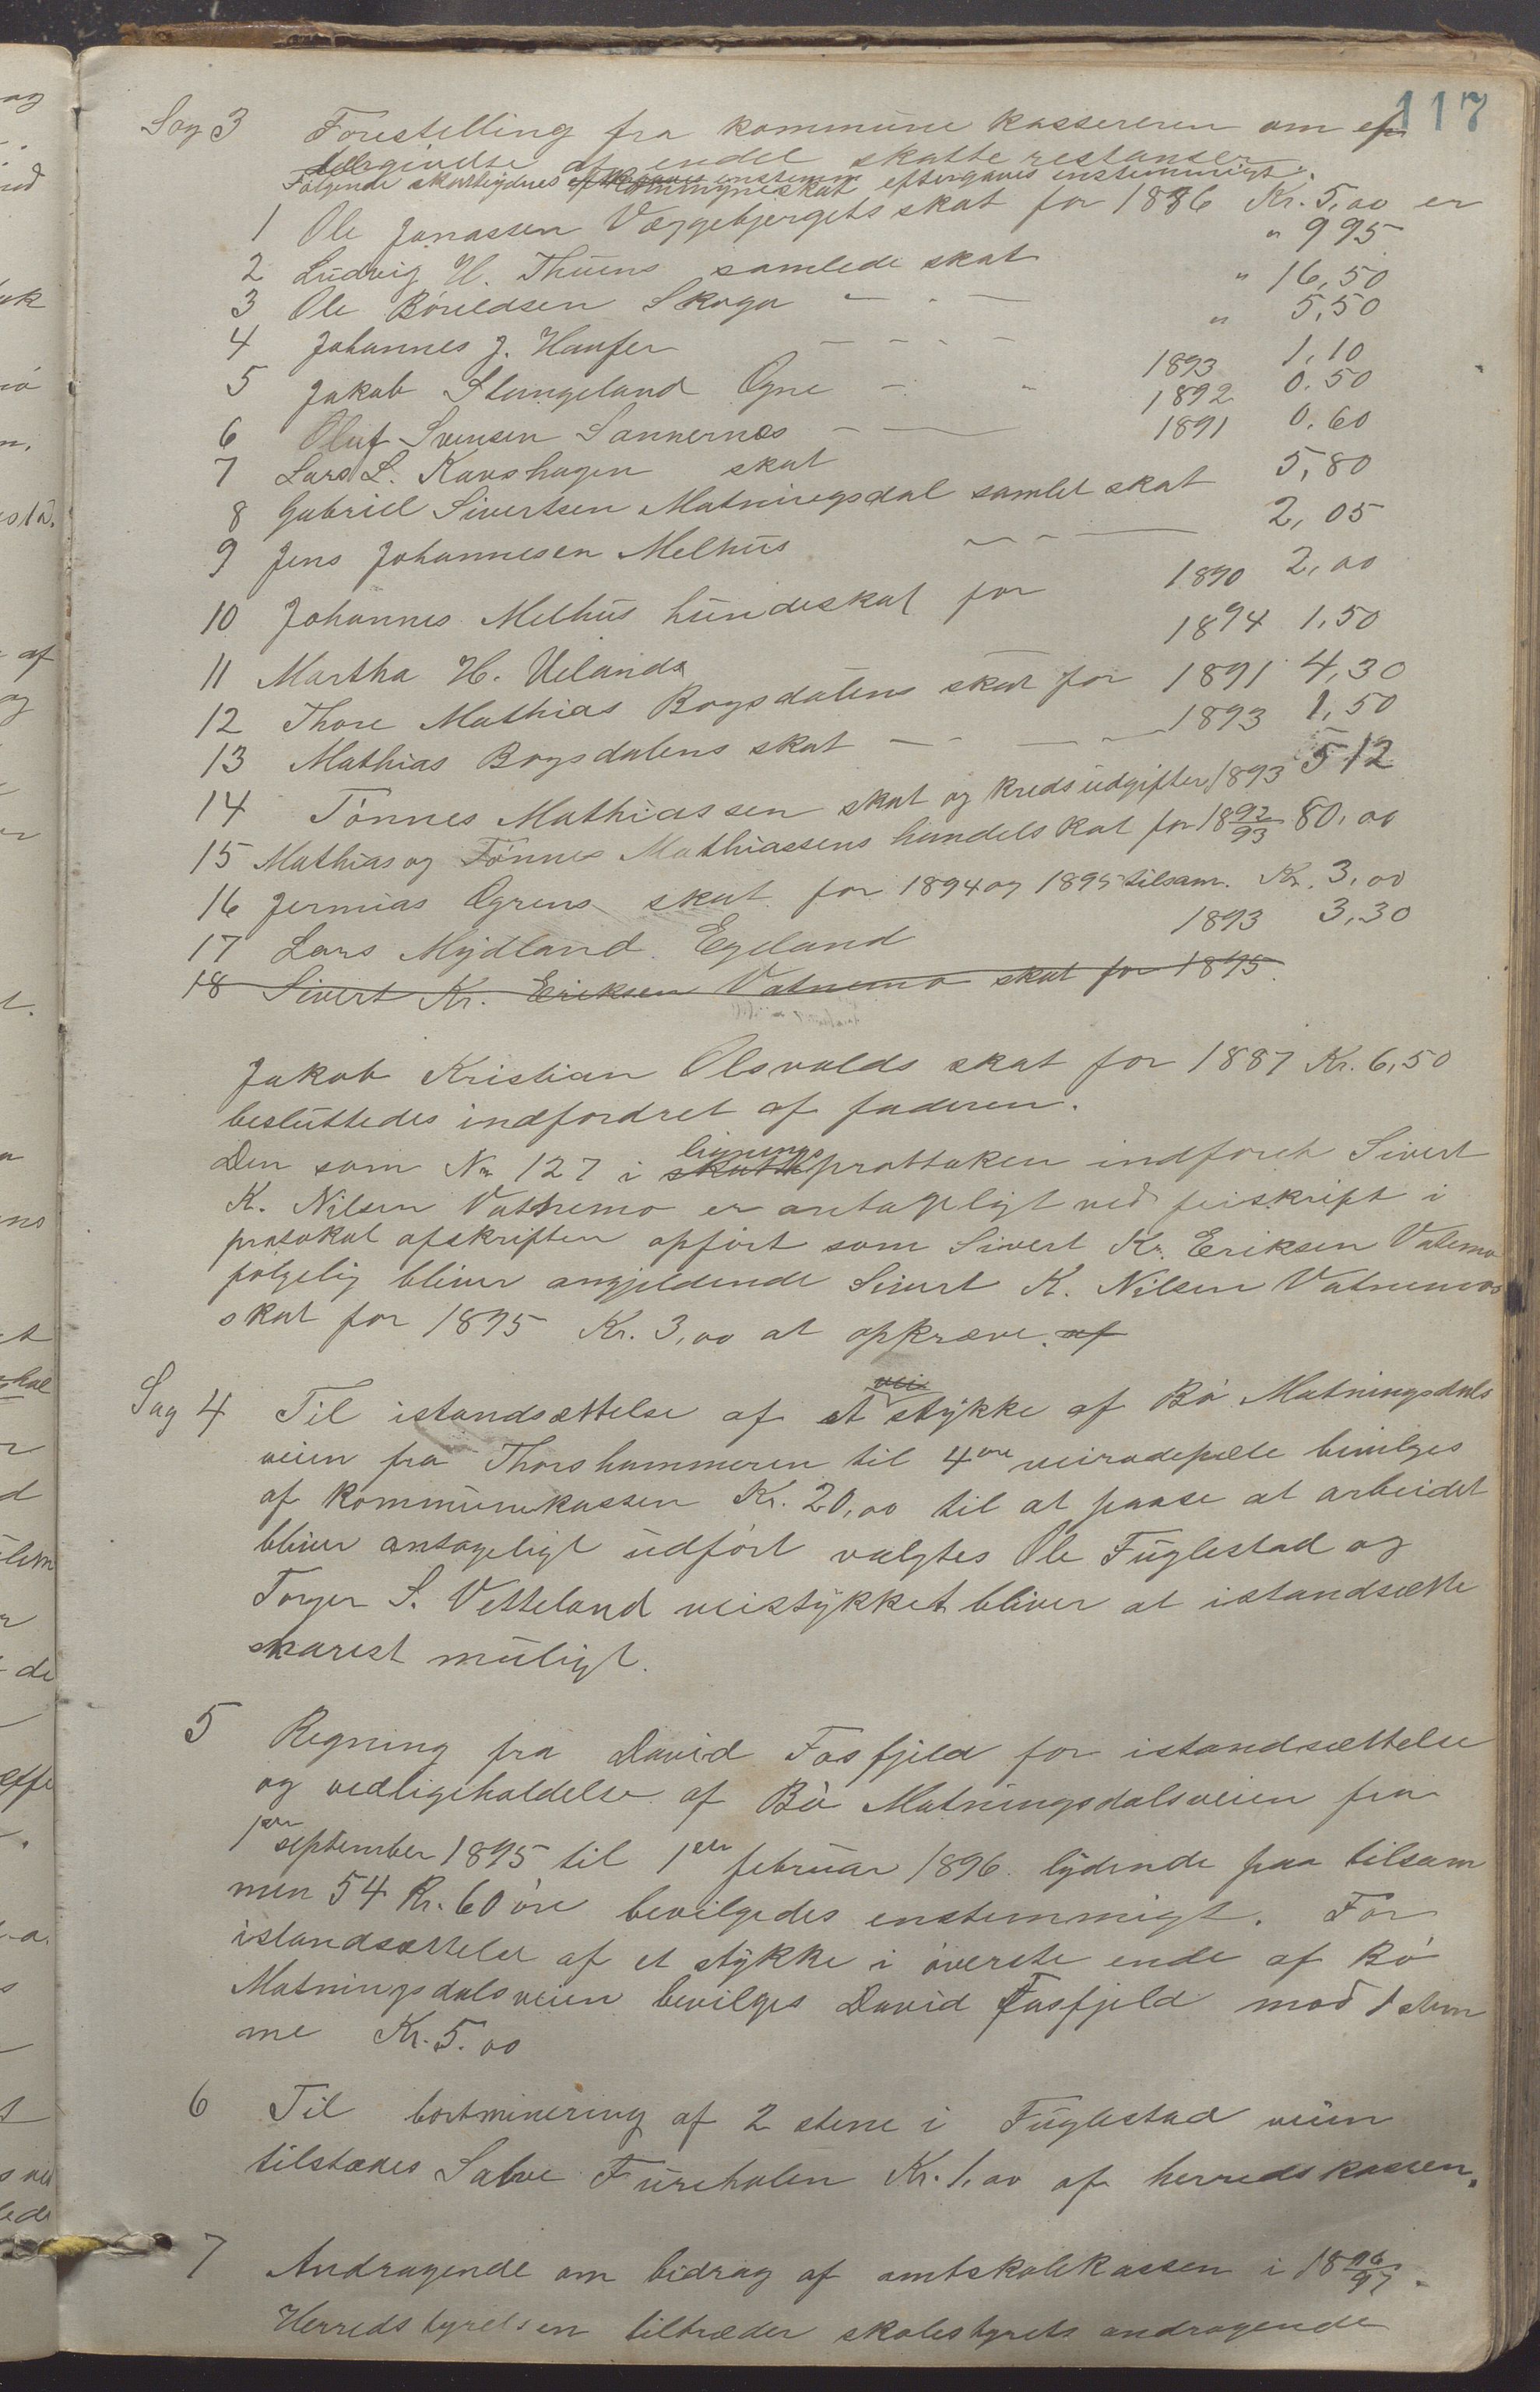 117
Sag 3 Forestelling fra kommune kassereren om ef
tergivelse af endel skatte restanser.
Følgende skatteyderes kommuneskat eftergaves enstemmigt.
1 Ole Jonassen Væggebjergets skat for 1886 Kr. 5,00 er
2 Ludvig H. Thuens samlede skat " 9 95
3 Ole Böreldsen Skoga — " — " 16,50
4 Johannes J. Haafer — — — — " 5,50
5 Jakob Stengeland Ogne — " 1893 1,10
6 Oluf Svensen Sannernes — — 1892 0.50
7 Lars L. Kavshagen skat 1891 0.60
8 Gabriel Sivertsen Matningsdal samlet skat 5,80
9 Jens Johannesen Melhus — — — 2,05
10 Johannes Melhus hundeskat for 1890 2,00
11 Martha H. Uelands — 1894 1,50
12 Thore Mathias Bogsdalens skat for 1891 4,30
13 Mathias Bogsdalens skat — — — — 1893 1,50
14 Tönnes Mathiassen skat og kredsudgifter 1893 5 12
15 Mathias og Tönnes Mathiassens handelskat for 18 92/93 80,00
16 Jermias Ogrens skat for 1894 og 1895 tilsam. Kr. 3,00
17 Lars Mydland Egeland 1893 3,30
18 Sivert Kr. Eriksen Vatnemo skat for 1895
Jakob Kristian Olsvalds skat for 1887 Kr. 6,50
besluttedes indfordret af faderen.
lignings
Den som No 127 i skatte prottoken indfört Sivert
K. Nilsen Vatnemo er antageligt ved feiskrift i
protokol afskriften opfört som Sivert Kr. Eriksen Vatnemo
følgelig bliver angjeldende Sivert K. Nilsen Vatnemos
skat for 1895 Kr. 3,00 at opkræve. af
vei
Sag 4 Til istandsættelse af et stykke af Bö Matningsdals
veien fra Thorshammeren til 4de veirodepæle bevilges
af kommunekassen Kr. 20,00 til at paase at arbeidet
bliver antageligt udfört valgtes Ole Fuglestad og
Torger S. Vetteland veistykket bliver at istandsætte
snarest muligt.
5 Regning fra David Fosfjeld for istandsættelse
og vedligeholdelse af Bö Matningsdalsveien fra
1ste september 1895 til 1ste februar 1896 lydende paa tilsam
men 54 Kr. 60 öre bevilgedes enstemmigt. For
istandsættelse af et stykke i överste ende af Bö
Matningsdalsveien bevilges David Fasfjeld mod 1 stem
me Kr. 5.00
6 Til bortminering af 2 stene i Fuglestad veien
tilstaaes Salve Fureholen Kr. 1,00 af herredskassen.
7 Andragende om bidrag af amtskolekassen i 18 96/97.
Herredstyrelsen tiltræder skolestyrets andragende